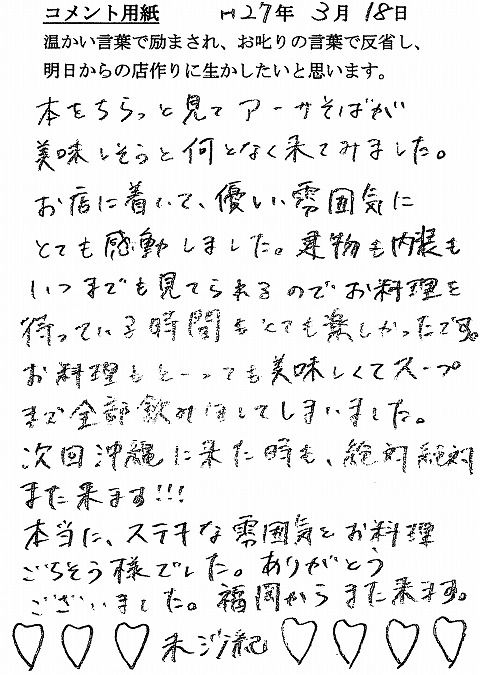 コメント用紙 H27年 3月 18日
温かい言葉で励まされ、お叱りの言葉で反省し、
明日からの店作りに生かしたいと思います。
本をちらっと見てアーサそばが
美味しそうと何となく来てみました。
お店に着いて、優しい雰囲気に
とても感動しました。建物も内装も
いつまでも見てられるのでお料理を
待っている時間もとても楽しかったです。
お料理もとーっても美味しくてスープ
まで全部飲みほしてしまいました。
次回沖縄に来た時も、絶対絶対
また来ます!!!
本当に、ステキな雰囲気とお料理
ごちそう様でした。ありがとう
ございました。福岡からまた来ます。
♡ ♡ ♡ ♡ ♡ ♡ ♡